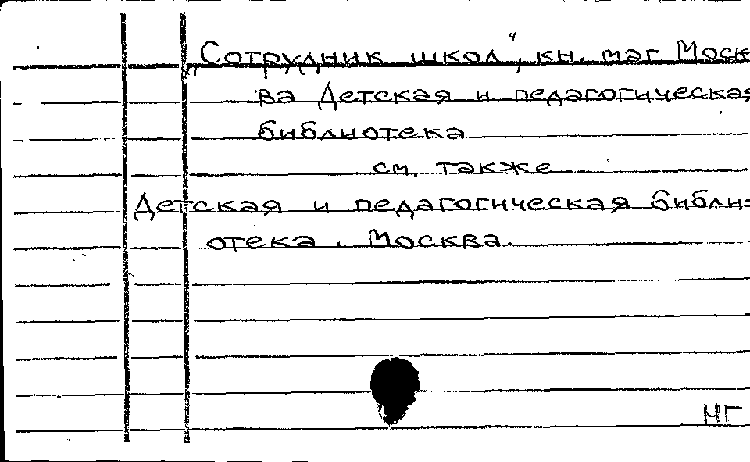 „Сотрудник школ“, кн. маг Моск
ва Детская и педагогическая
библиотека
см. также
Детская и педагогическая библи=
отека. Москва.
НГ